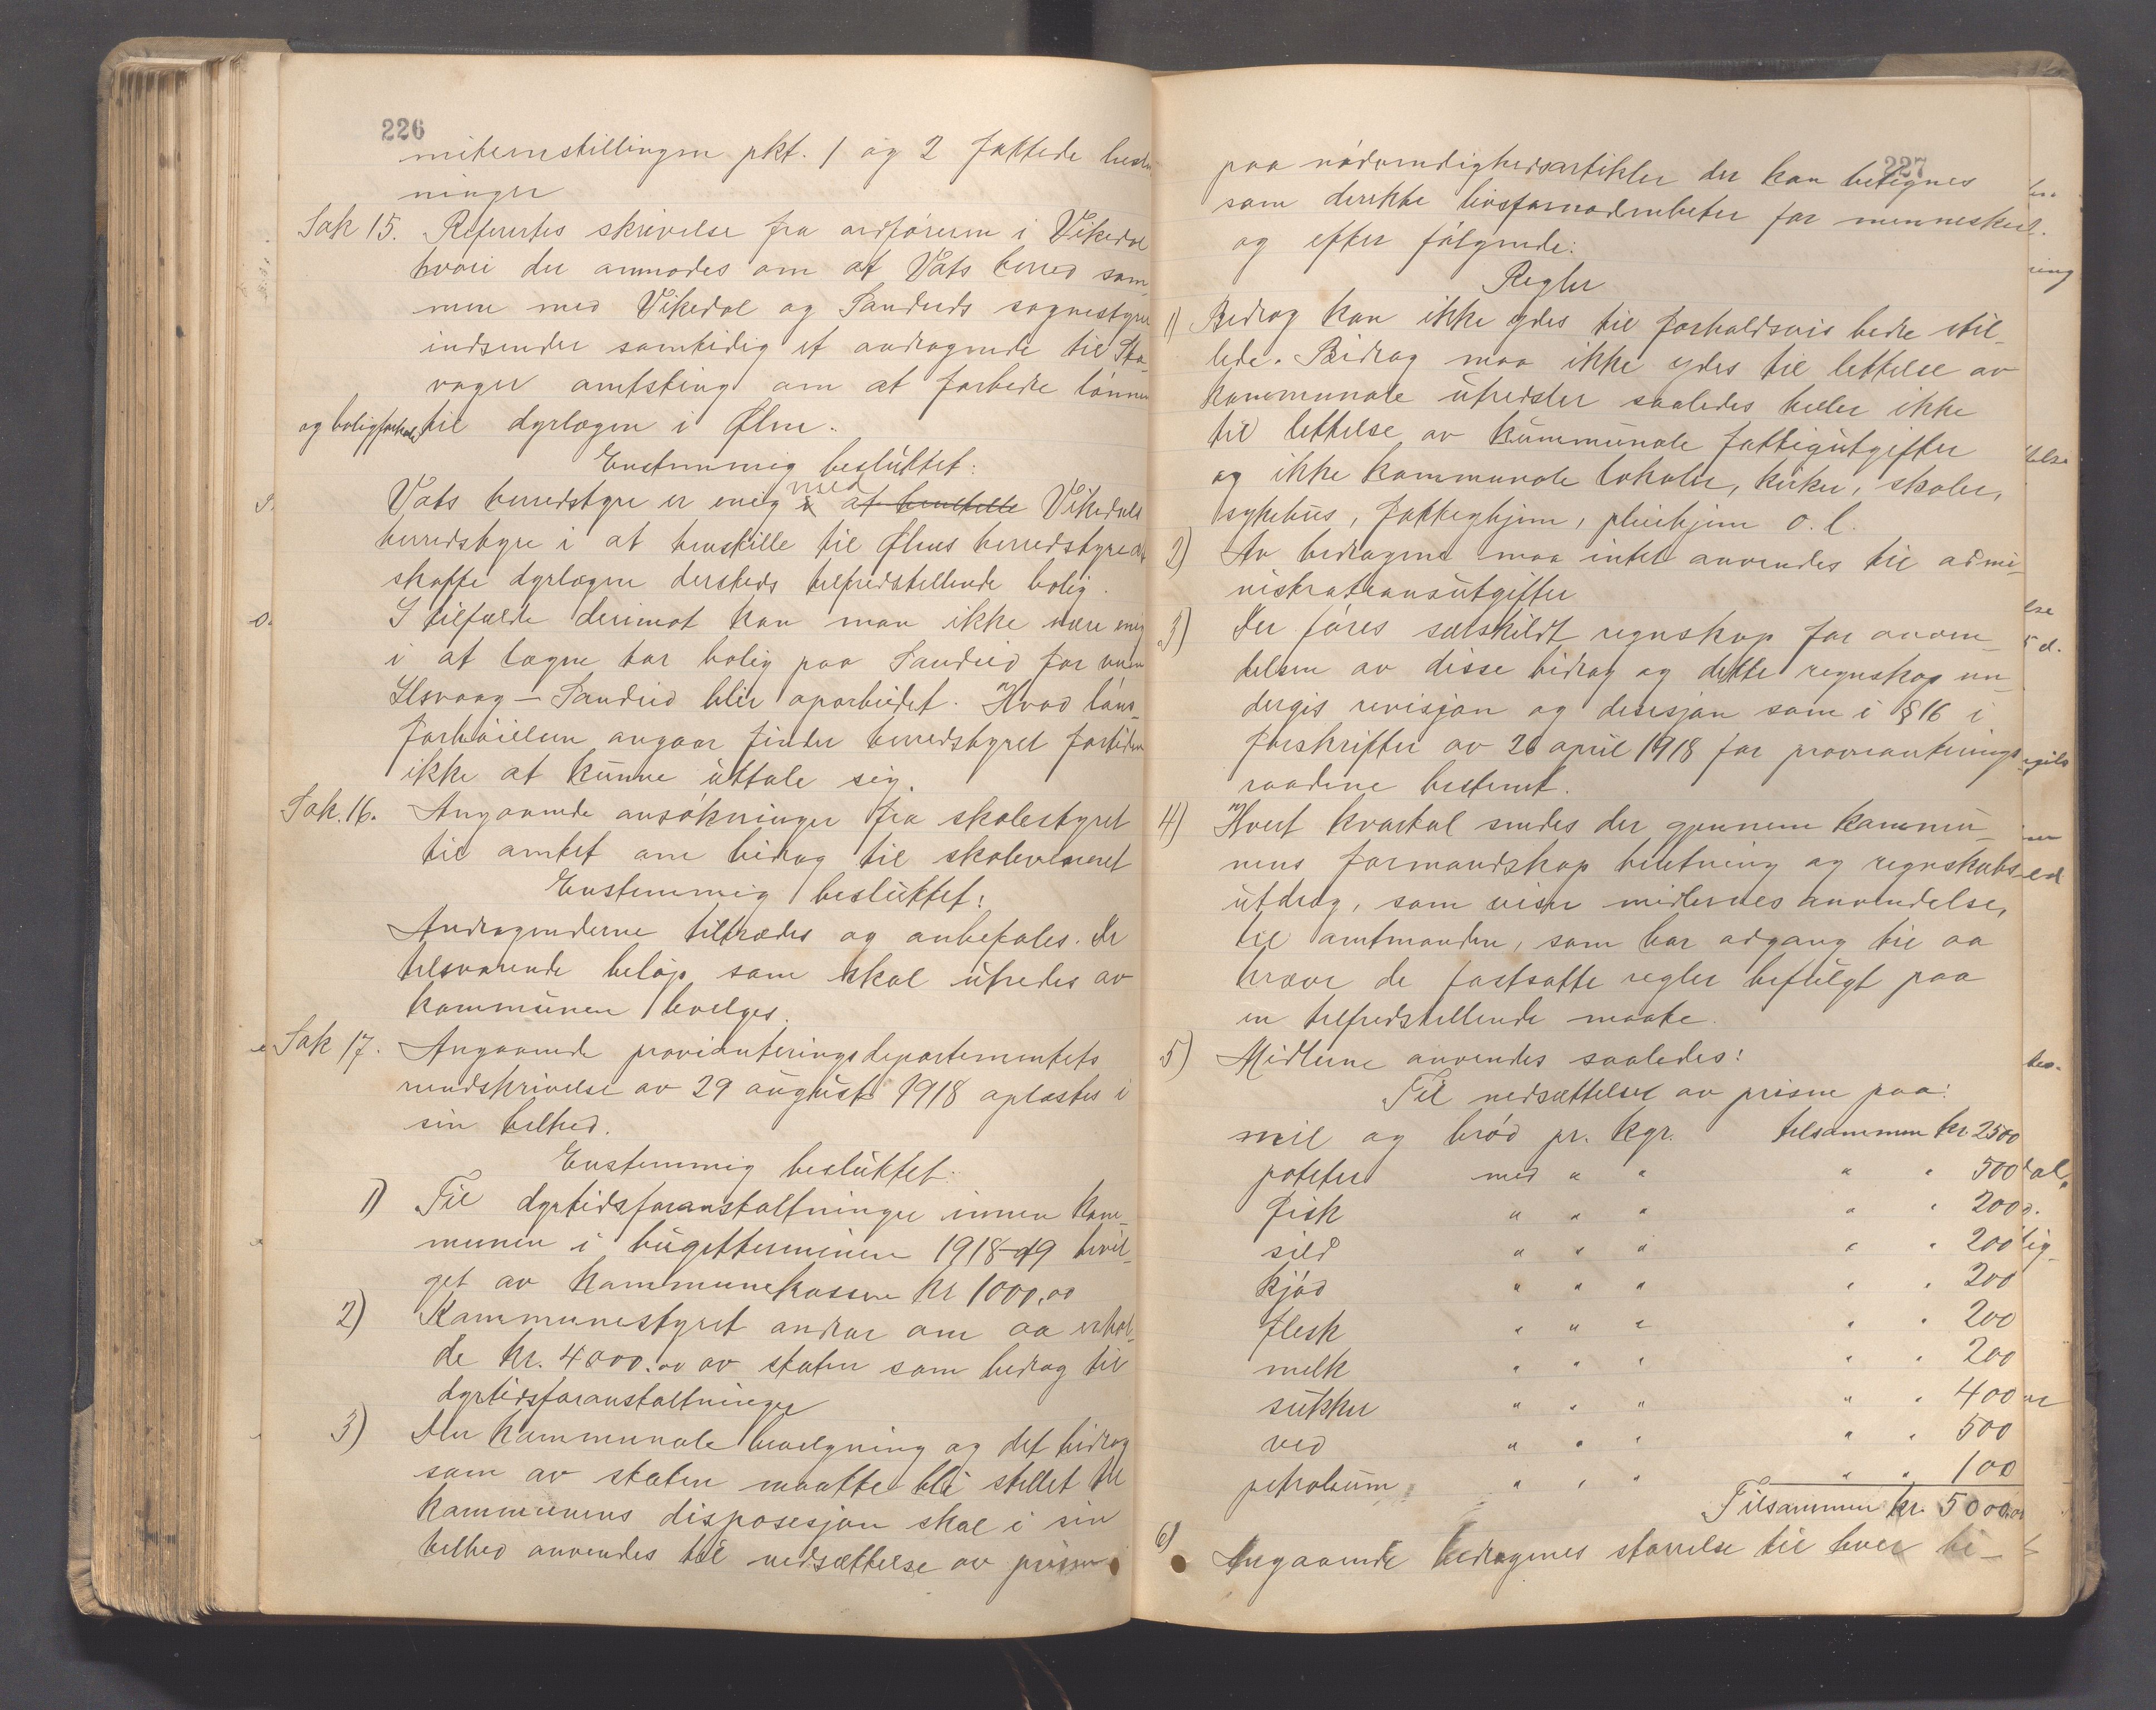 226
miteinstillingen pkt. 1 og 2 fattede beslut
ninger
Sak 15. Referertes skrivelse fra ordføreren i Vikedal
hvori der anmodes om at Vats herred sam-
men med Vikedal og Sandeids sognestyre
indsender samtidig et andragende til Sta-
vager amtsting om at forbedre lønnen
og boligforhold til dyrlægen i Ølen.
Enstemmig besluttet:
Vats herredstyre er enig i med at henstille Vikedals
herredstyre i at henstille til Ølens herredstyre at
skaffe dyrlægen dersteds tilfredstellende bolig.
I tilfælde derimot kan man ikke være enig
i at lægen tar bolig paa Sandeid før veien
Ilsvaag - Sandeid blir oparbeidet. Hvad løns-
forhøielsen angaar finder herredstyret fortiden
ikke at kunne uttale sig.
Sak. 16. Angaaende ansøkninger fra skolestyret
til amtet om bidrag til skolevæsenet
Enstemmig besluttet:
Andragenderne tiltrædes og anbefales. De
tilsvarende beløp som skal utredes av
kommunen bevilges.
Sak 17. Angaaende provianteringsdepartementets
rundskrivelse av 29 august 1918 oplæstes i
sin helhed.
Enstemmig besluttet:
1) Til dyrtidsforanstaltninger innen kom-
munen i bugetterminen 1918-19 bevil-
get av kommunekassen kr 1000,00
2) Kommunestyret andrar om aa erhol-
de kr. 4000.00 av staten som bedrag til
dyrtidsforanstaltninger
3) Den kommunale bevilgning og det bidrag
som av staten maatte bli stillet til
kommunens disposisjon skal i sin
helhed anvendes til nedsættelse av prisen
227
paa nødvendighedsartikler der kan betegnes
som direkte livsfornødenheter for mennesker
og efter følgende:
Regler
1) Bedrag kan ikke ydes til forholdsvis bedre stil-
lede. Bidrag maa ikke ydes til lettelse av
kommunale utredsler saaledes heller ikke
til lettelse av kummunale fattigutgifter
og ikke kommunale lokaler, kirker, skoler,
sykehus, fattighjem, pleiehjem o. l.
2) Av bedragene maa intet anvendes til admi-
nistrationsutgifter
3) Der føres særskildt regnskap for anven-
delsen av disse bidrag og dette regnskap un-
dergis revisjon og desisjon som i § 16 i
forskrifter av 26 april 1918 for provianterings-
raadene bestemt.
4) Hvert kvartal sendes der gjennem kommu-
nens formandskap beretning og regnskabs-
utdrag, som viser midlernes anvendelse,
til amtmanden, som har adgang til aa
kræve de fastsatte regler befulgt paa
en tilfredstillende maate.
5) Midlerne anvendes saaledes:
Til nedsættelse av prisene paa:
mel og brød pr. kgr. tilsammen kr 2500
poteter med " " " " 500
fisk " " " " " 200
sild " " " " " 200
kjød " " " " " 200
flesk " " " " " 200
melk " " " " " 200
sukker " " " " " 400
ved " " " " " 500
petroleum " " " " " 100
Tilsammen kr. 5000.00
6) Angaaende bedragenes størrelse til hver be-